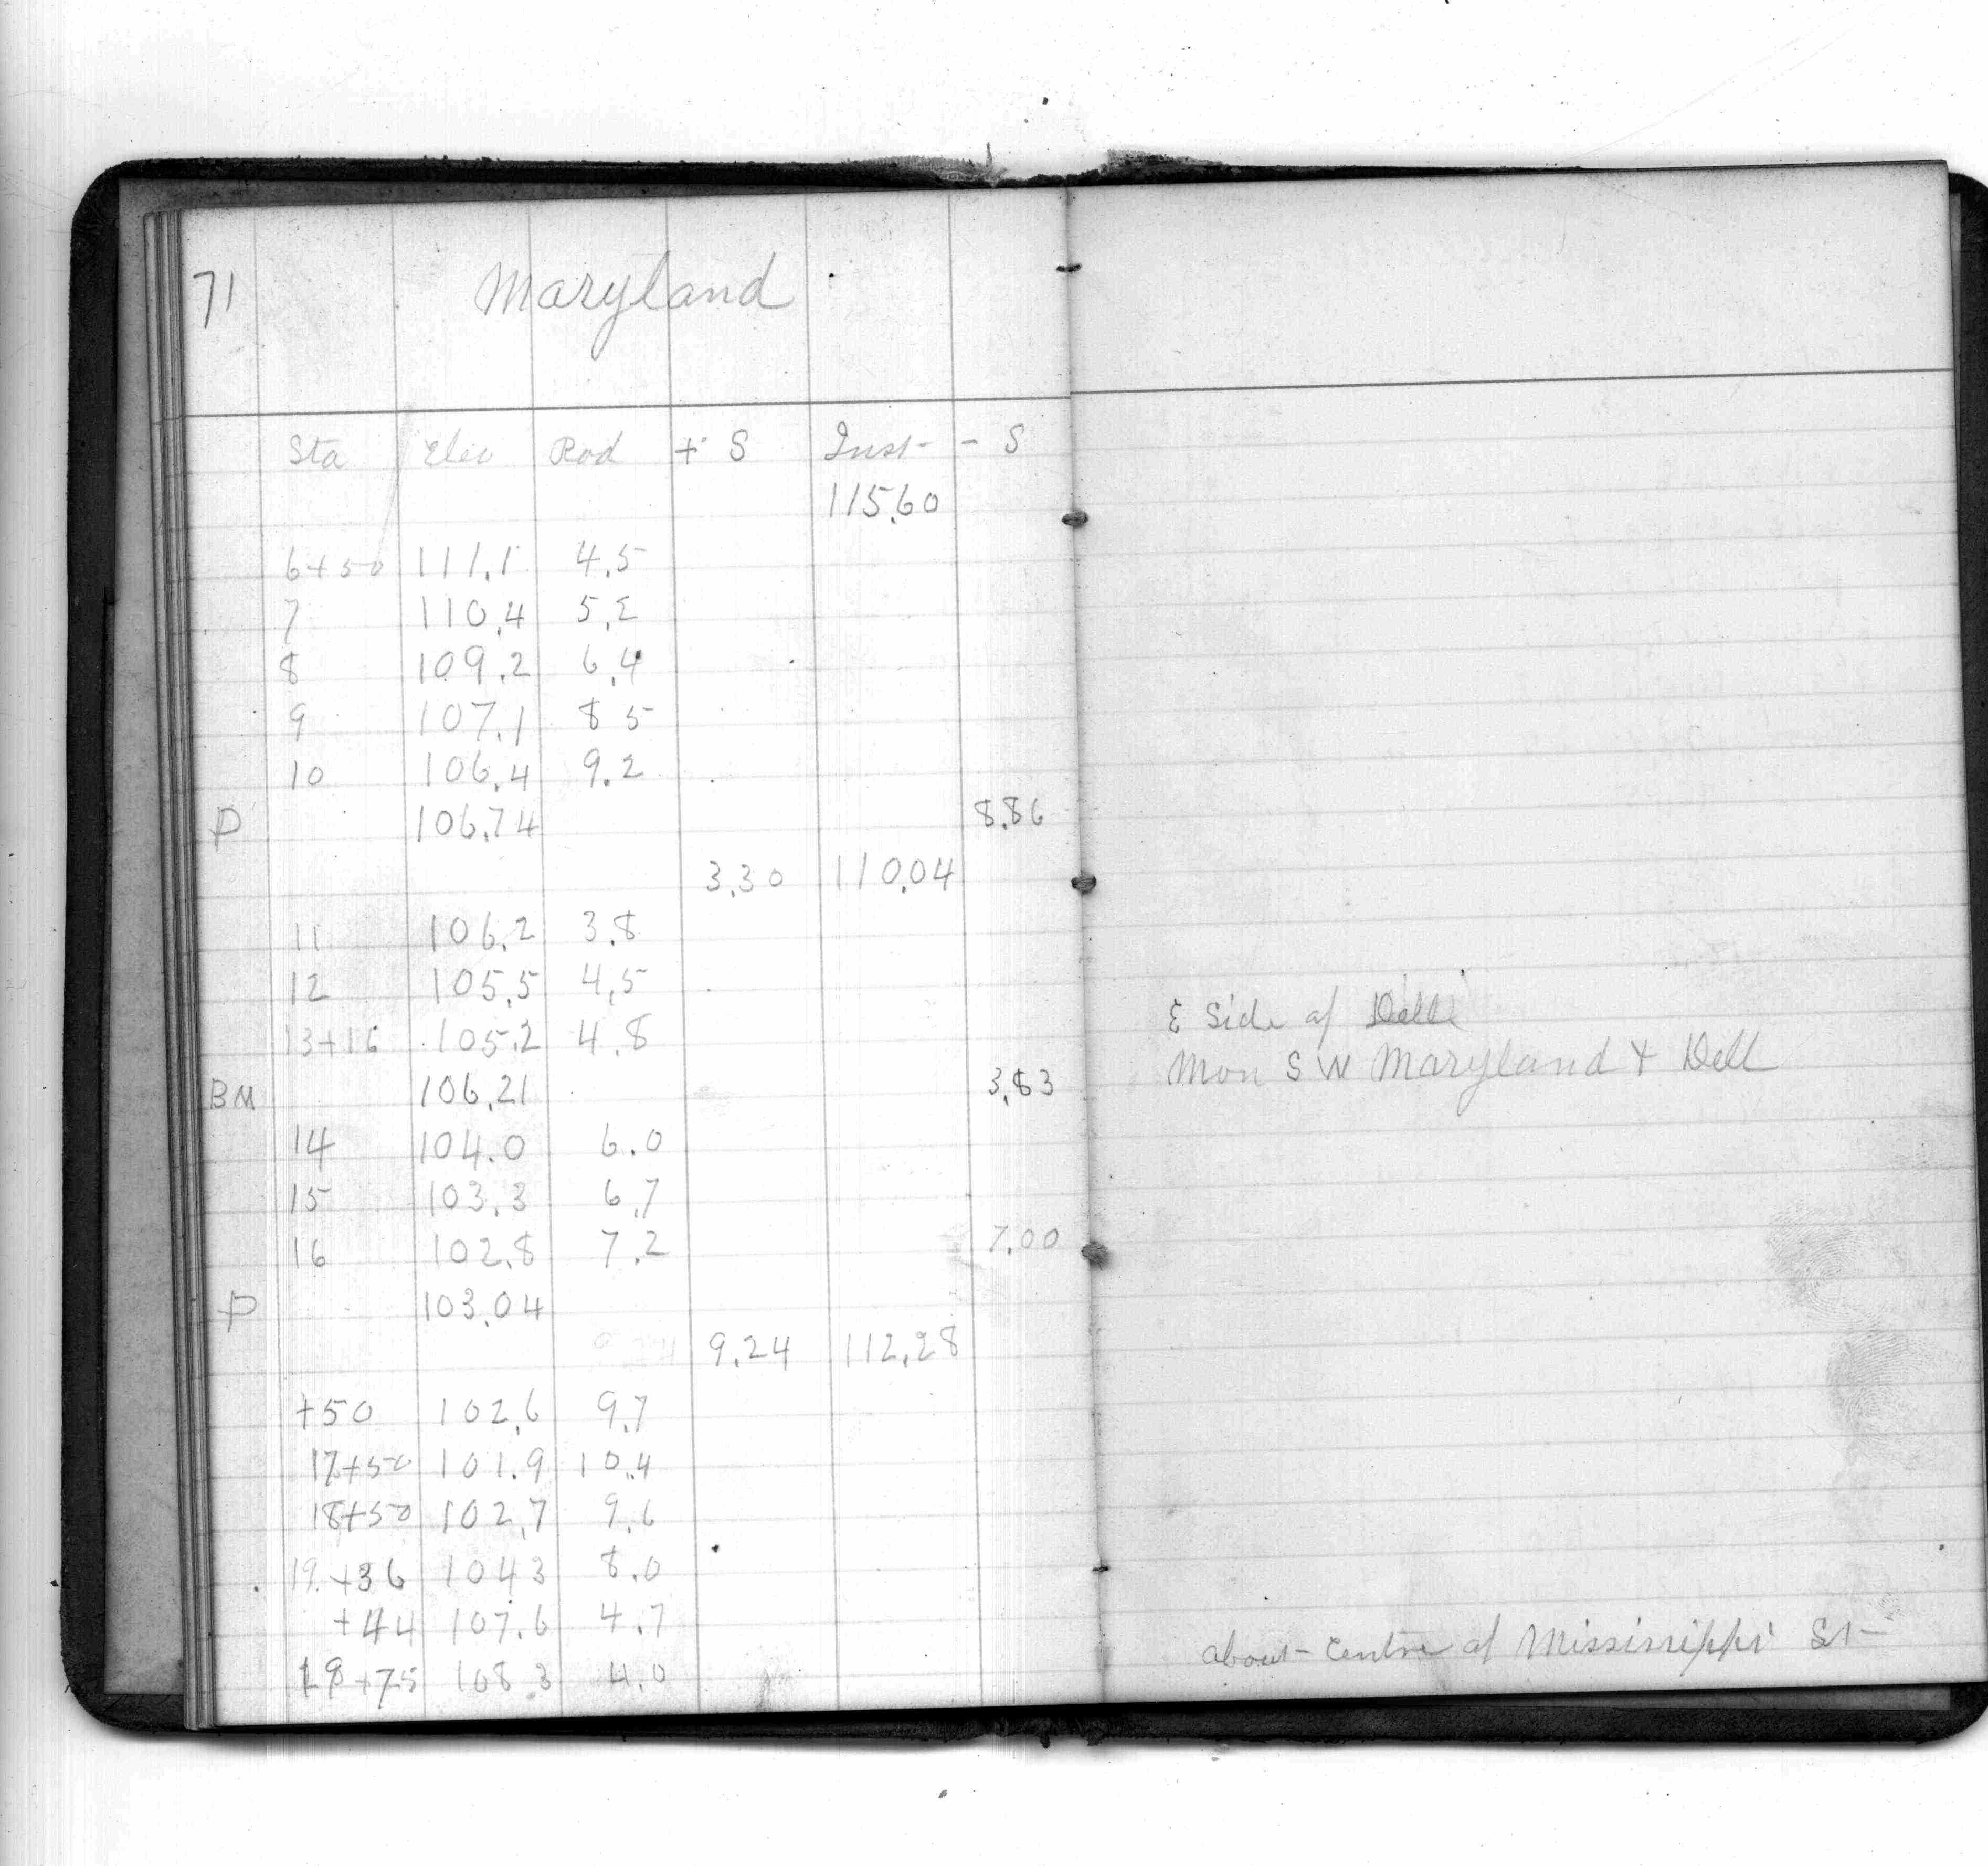 71 Maryland
Sta Elev Rod + S Inst - S
115.60
6+50 111.1 4.5
7 110.4 5.2
8 109.2 6.4
9 107.1 8 5
10 106.4 9.2
P 106.74 8.86
3.30 110.04
11 106.2 3.8
12 105.5 4.5
13+16 105.2 4.8 E Side of Dell
BM 106.21 3.83 Mon S W Maryland + Dell
14 104.0 6.0
15 103.3 6.7
16 102.8 7.2 7.00
P 103.04
9.24 112.28
+50 102.6 9.7
17+50 101.9 10.4
18+50 102.7 9.6
19.+36 104 3 8.0
+44 107.6 4.7
19+75 108 3 4.0 about centre of Mississippi St